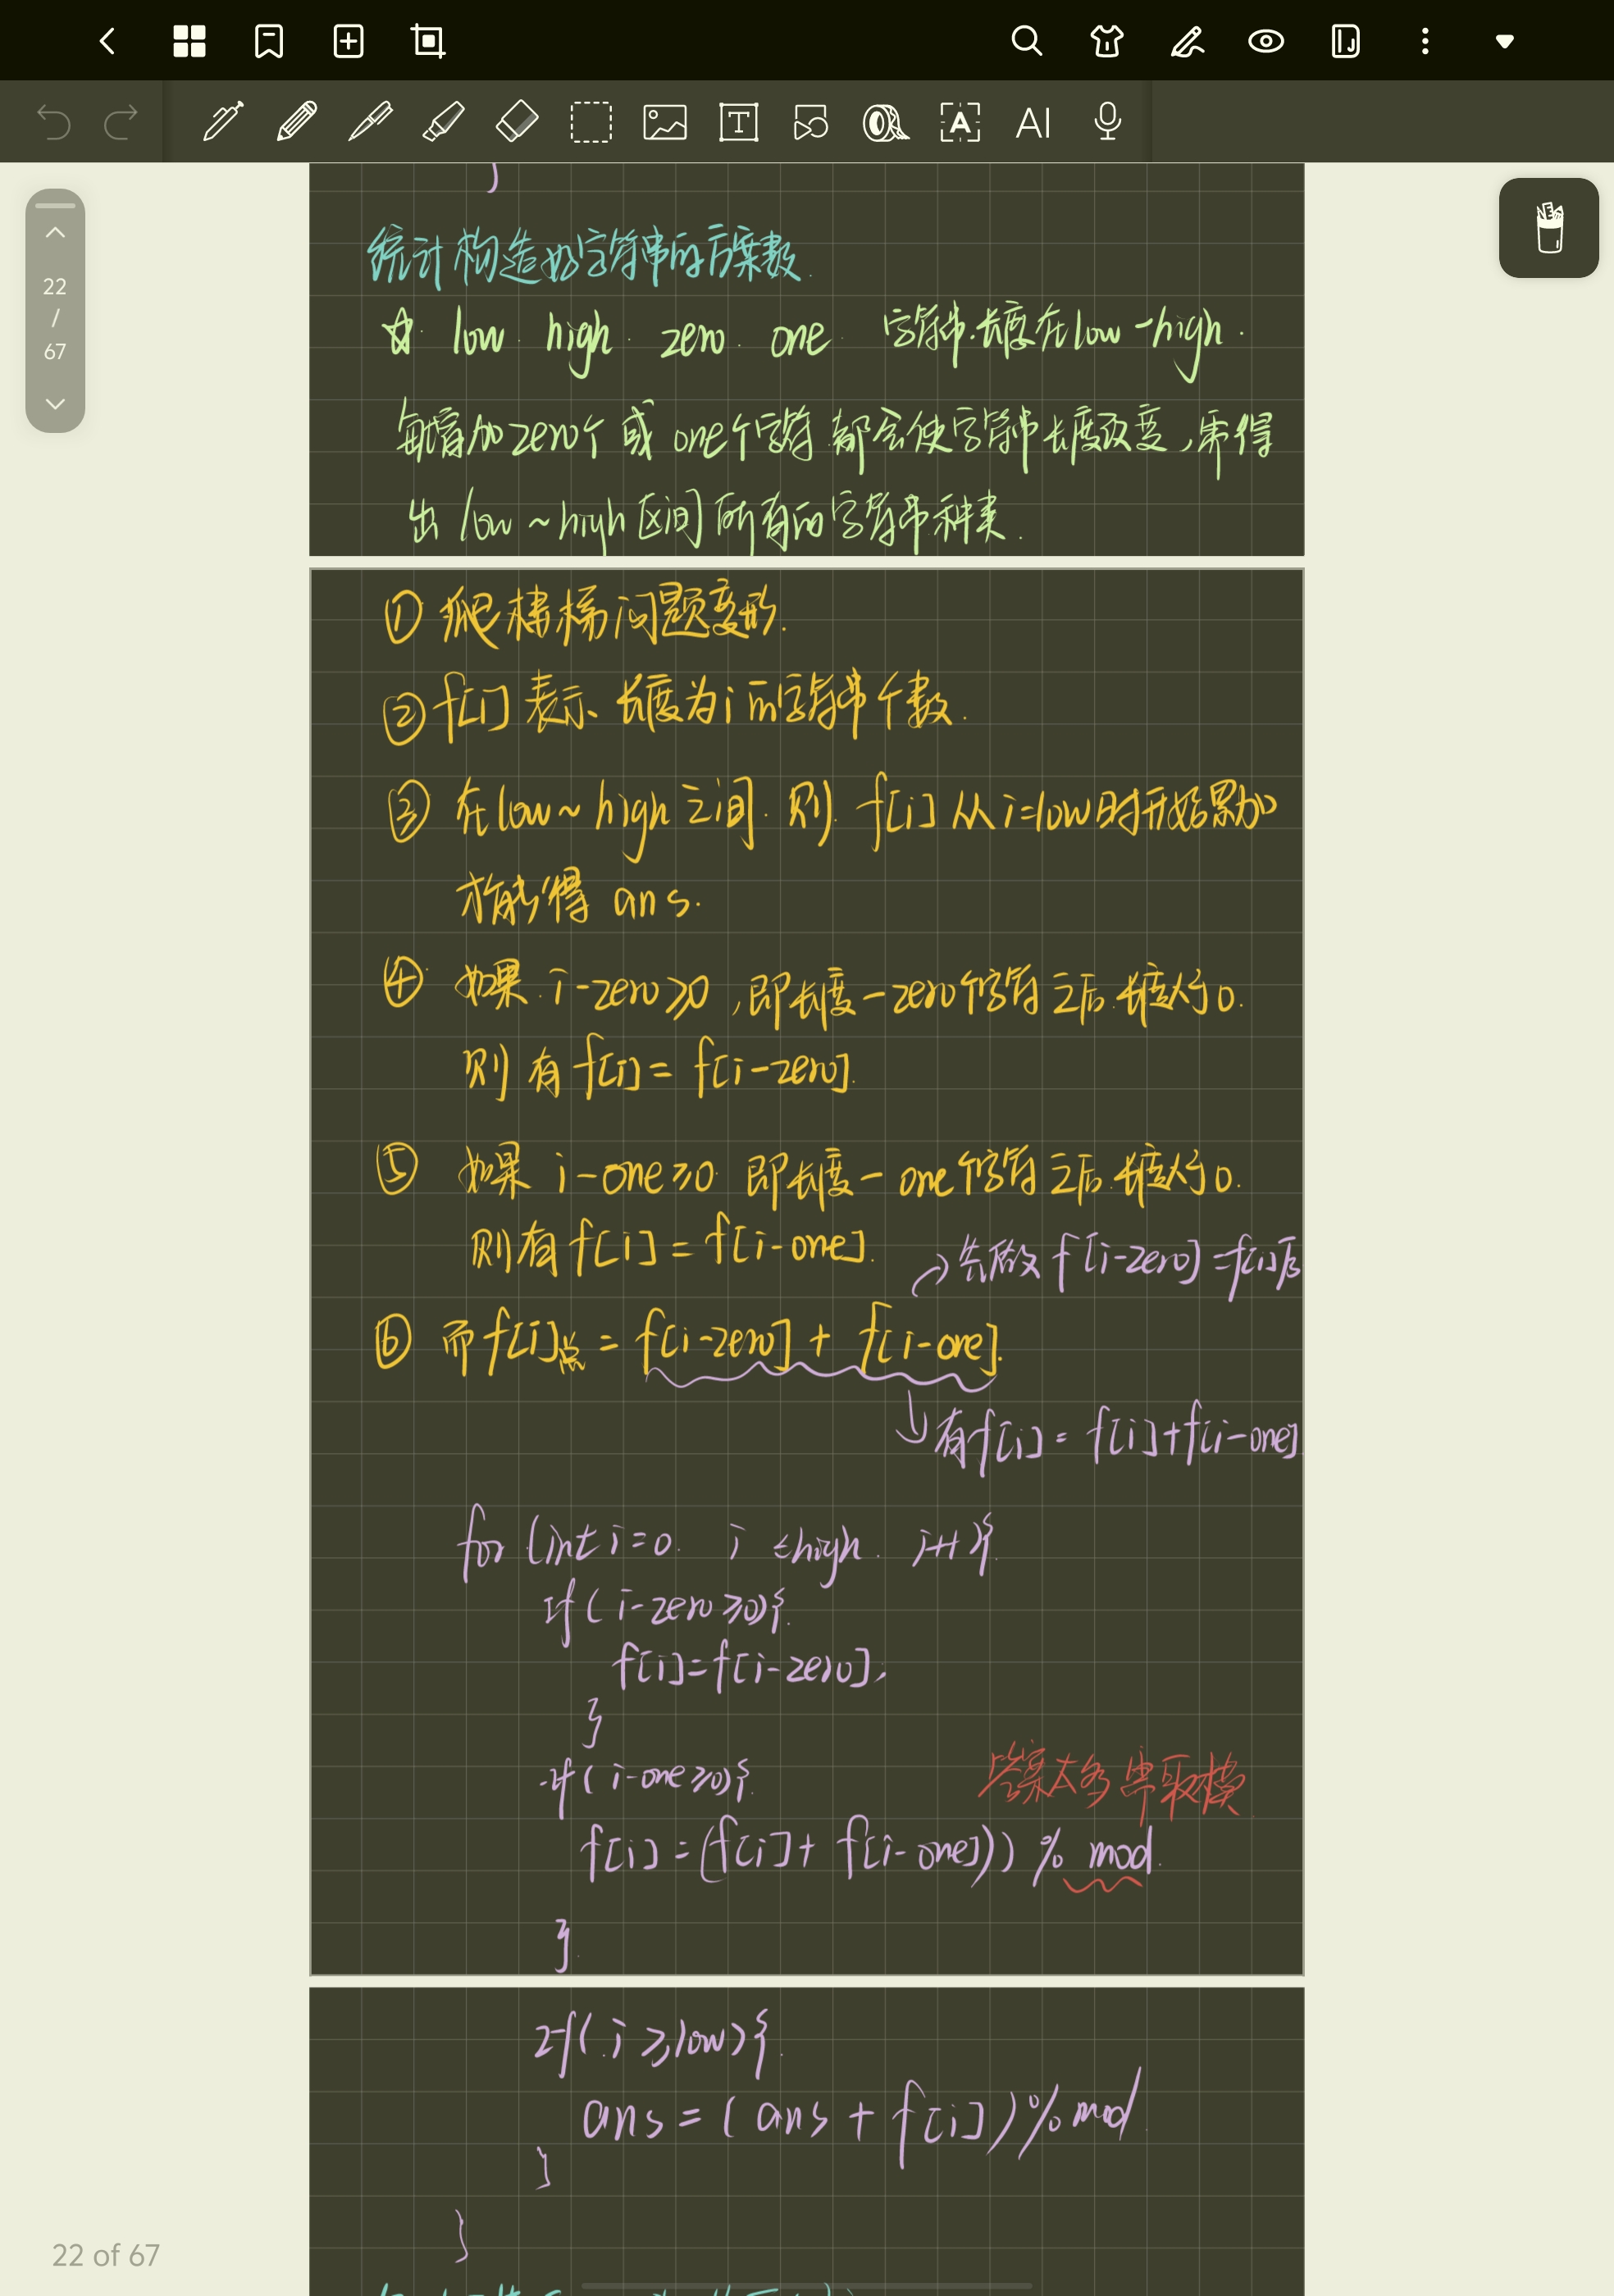 AI
22
/
67
统计构造好字符串的方案数
☆ low high zero one 字符串长度在low-high.
每增加zero个或one个字符都会使字符串长度改变,需得
出low~high区间所有的字符串种类.
① 爬楼梯问题变形.
② f[i]表示长度为i的字符串个数.
③ 在low~high之间.则 f[i]从i=low时开始累加
才能得 ans.
④ 如果 i-zero≥0,即长度-zero个字符之后长度大于0.
则有f[i]=f[i-zero].
⑤ 如果 i-one≥0 即长度-one个字符之后长度大于0.
则有f[i]=f[i-one].
先做f[i-zero]=f[i]后
⑥ 而f[i]总=f[i-zero]+f[i-one].
有f[i]=f[i]+f[i-one]
for (int i=0 i≤high i++){
if(i-zero≥0){
f[i]=f[i-zero],
}
if(i-one≥0){
答案太多需取模
f[i]=(f[i]+f[i-one])) % mod
}
if(i≥low){
ans=(ans+f[i])%mod
}
}
22 of 67